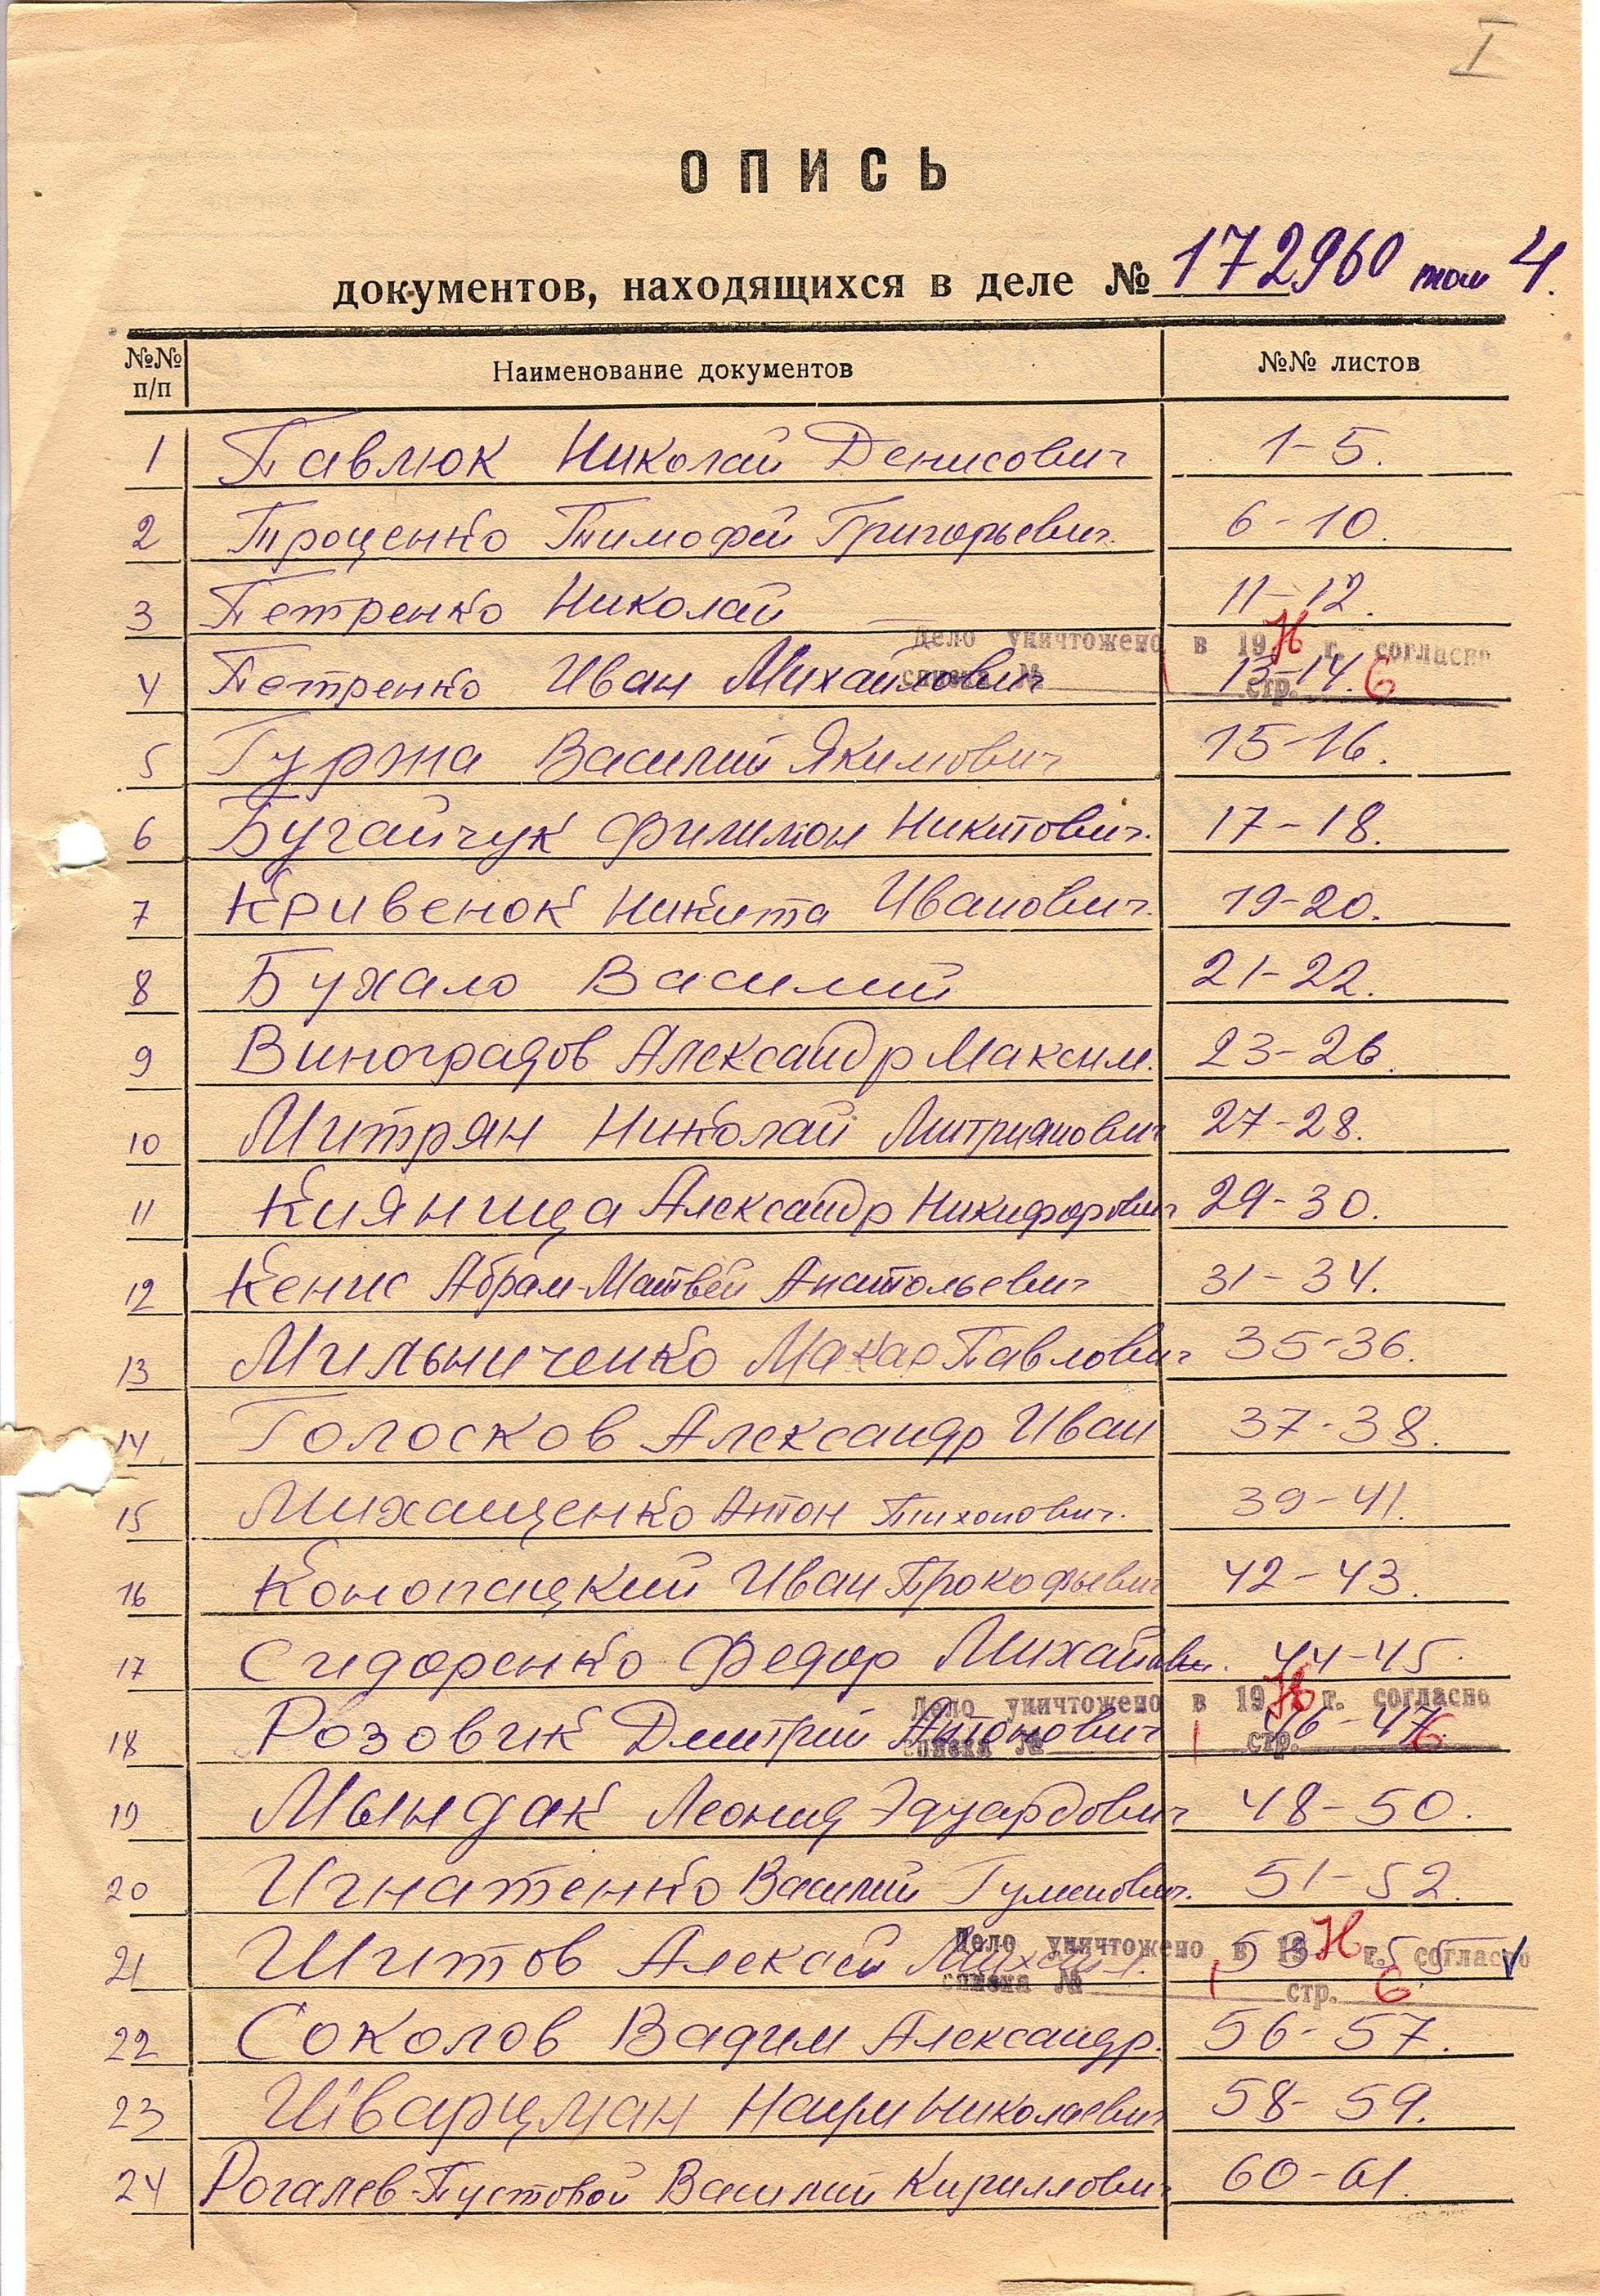 I
ОПИСЬ
документов, находящихся в деле № 172960 том 4.
№№ п/п Наименование документов №№ листов
1 Павлюк Николай Денисович 1-5.
2 Троценко Тимофей Григорьевич. 6-10.
3 Петренко Николай 11-12.
Дело уничтожено в 19 г. согласно
4 Петренко Иван Михайлович 13-14.
списка № 1 стр. 6
5 Гуржа Василий Якимович 15-16.
6 Бугайчук Филимон Никитович. 17-18.
7 Кривенок Никита Иванович. 19-20.
8 Бухало Василий 21-22.
9 Виноградов Александр Максим. 23-26.
10 Митрян Николай Митриянович 27-28.
11 Кияница Александр Никифорович 29-30.
12 Кенис Абрам-Матвей Анатольевич 31-34.
13 Мильниченко Макар Павлович 35-36.
14 Голосков Александр Иван 37-38.
15 Михащенко Антон Тихонович. 39-41.
16 Конопацкий Иван Прокофьевич 42-43.
17 Сидоренко Федор Михайлович. 44-45.
Дело уничтожено в 19 г. согласно
18 Розовик Дмитрий Антонович 46-47.
списка № 1 стр. 6
19 Мындак Леонид Эдуардович 48-50.
20 Игнатенко Василий 51-52.
Дело уничтожено в 19 г. согласно
21 Шитов Алексей Михайл. 53-55
списка № 1 стр. 6
22 Соколов Вадим Александр. 56-57.
23 Шварцман Наум Николаевич 58-59.
24 Рогалев-Пустовой Василий Кириллович 60-61.